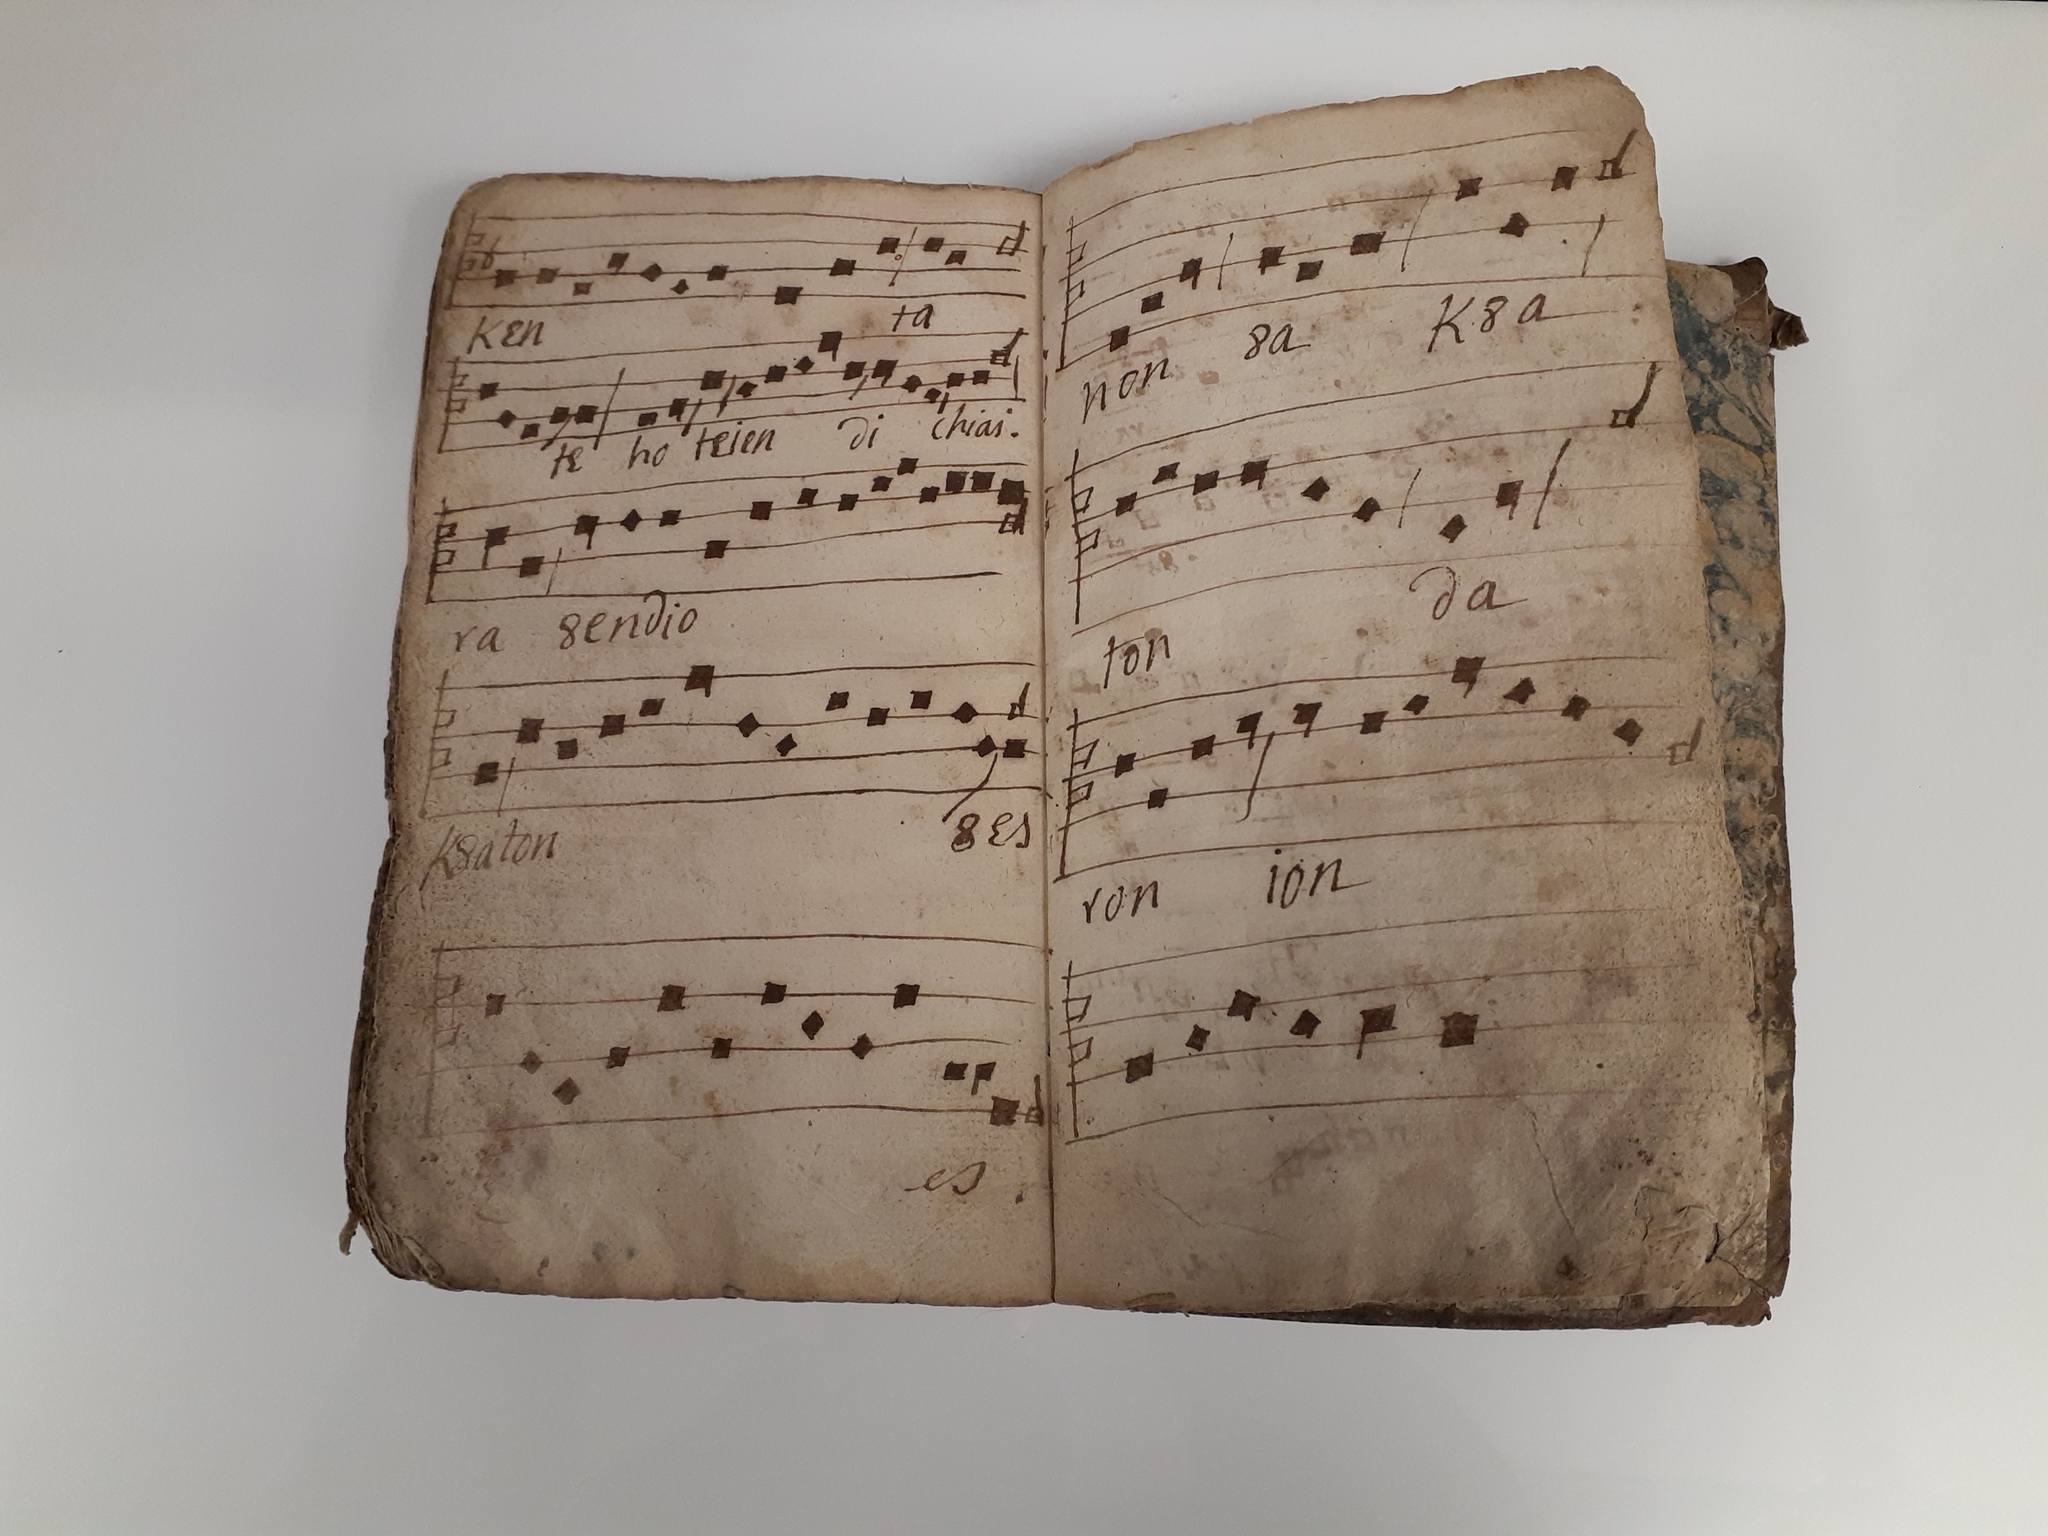 Ken ta
te ho teien di chiai.
ra 8endio
K8aton 8es
es.
non 8a K8a
ton da
ron ion